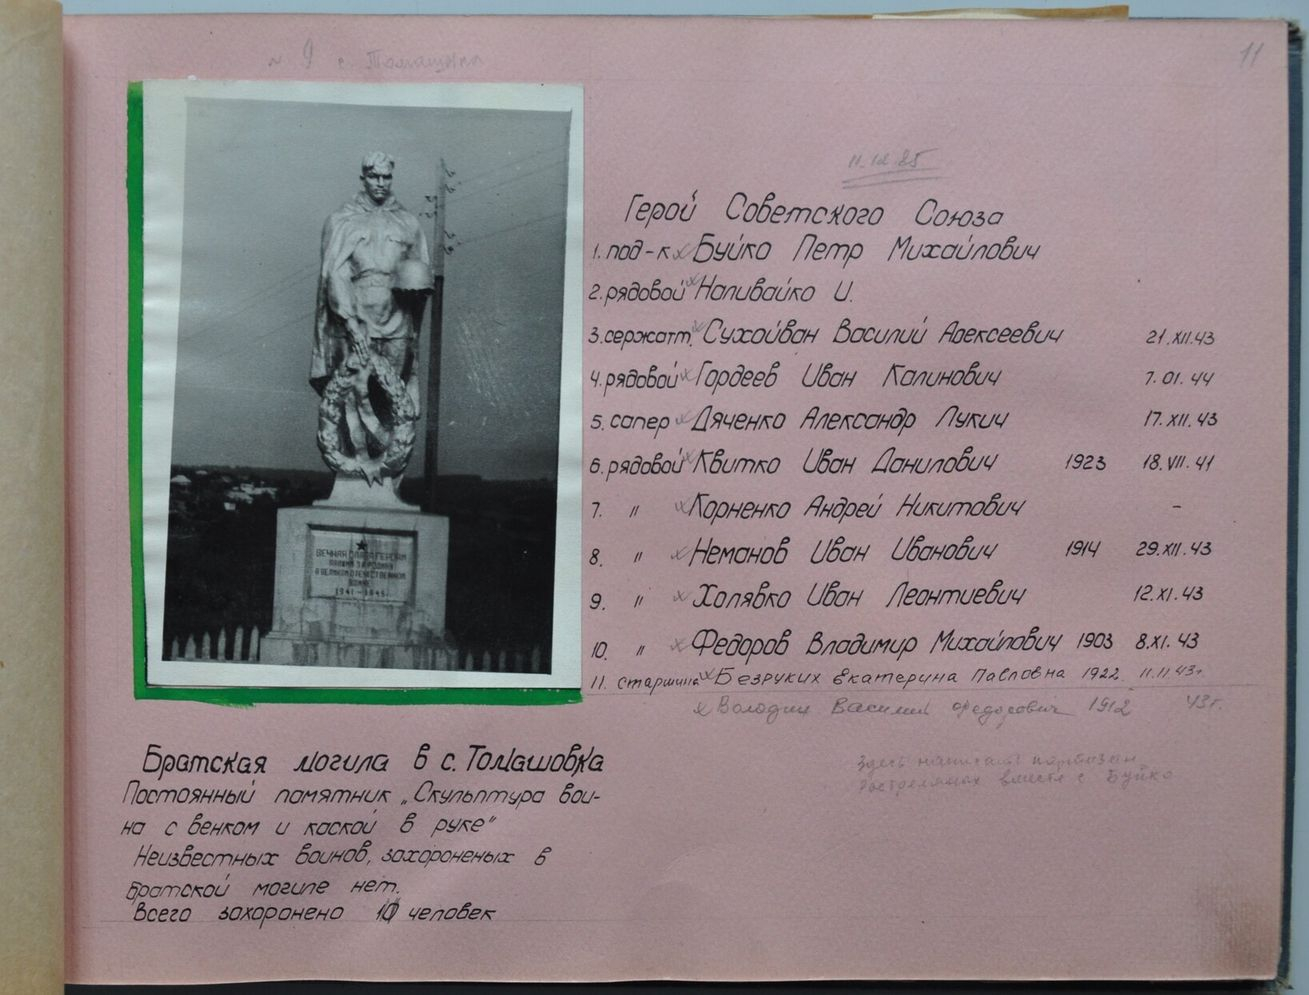 № 9 с. Томашовка
11
11.12.85
Герой Советского Союза
1. под-к х Буйко Петр Михайлович
2. рядовой х Наливайко И.
3. сержатт. х Сухойван Василий Алексеевич 21.XII.43
4. рядовой х Гордеев Иван Калинович 7.01.44
5. сапер х Дяченко Александр Лукич 17.XII.43
6. рядовой х Квитко Иван Данилович 1923 18.VII.41
7. " х Корненко Андрей Никитович -
8. " х Неманов Иван Иванович 1914 29.XII.43
9. " х Холявко Иван Леонтиевич 12.XI.43
10. " х Федоров Владимир Михайлович 1903 8.XI.43
11. старшина х Безруких Екатерина Павловна 1922 11.11.43г
х Володин Василий Федосович 1912 43г.
Здесь написать партизан
расстреляных вместе с Буйко
ВЕЧНАЯ СЛАВА ГЕРОЯМ
ПАВШИМ ЗА РОДИНУ
В ВЕЛИКОЙ ОТЕЧЕСТВЕННОЙ
ВОЙНЕ
1941-1945г.
Братская могила в с. Томашовка
Постоянный памятник „Скульптура вои-
на с венком и каской в руке"
Неизвестных воинов, захороненых в
братской могиле нет.
Всего захоронено человек